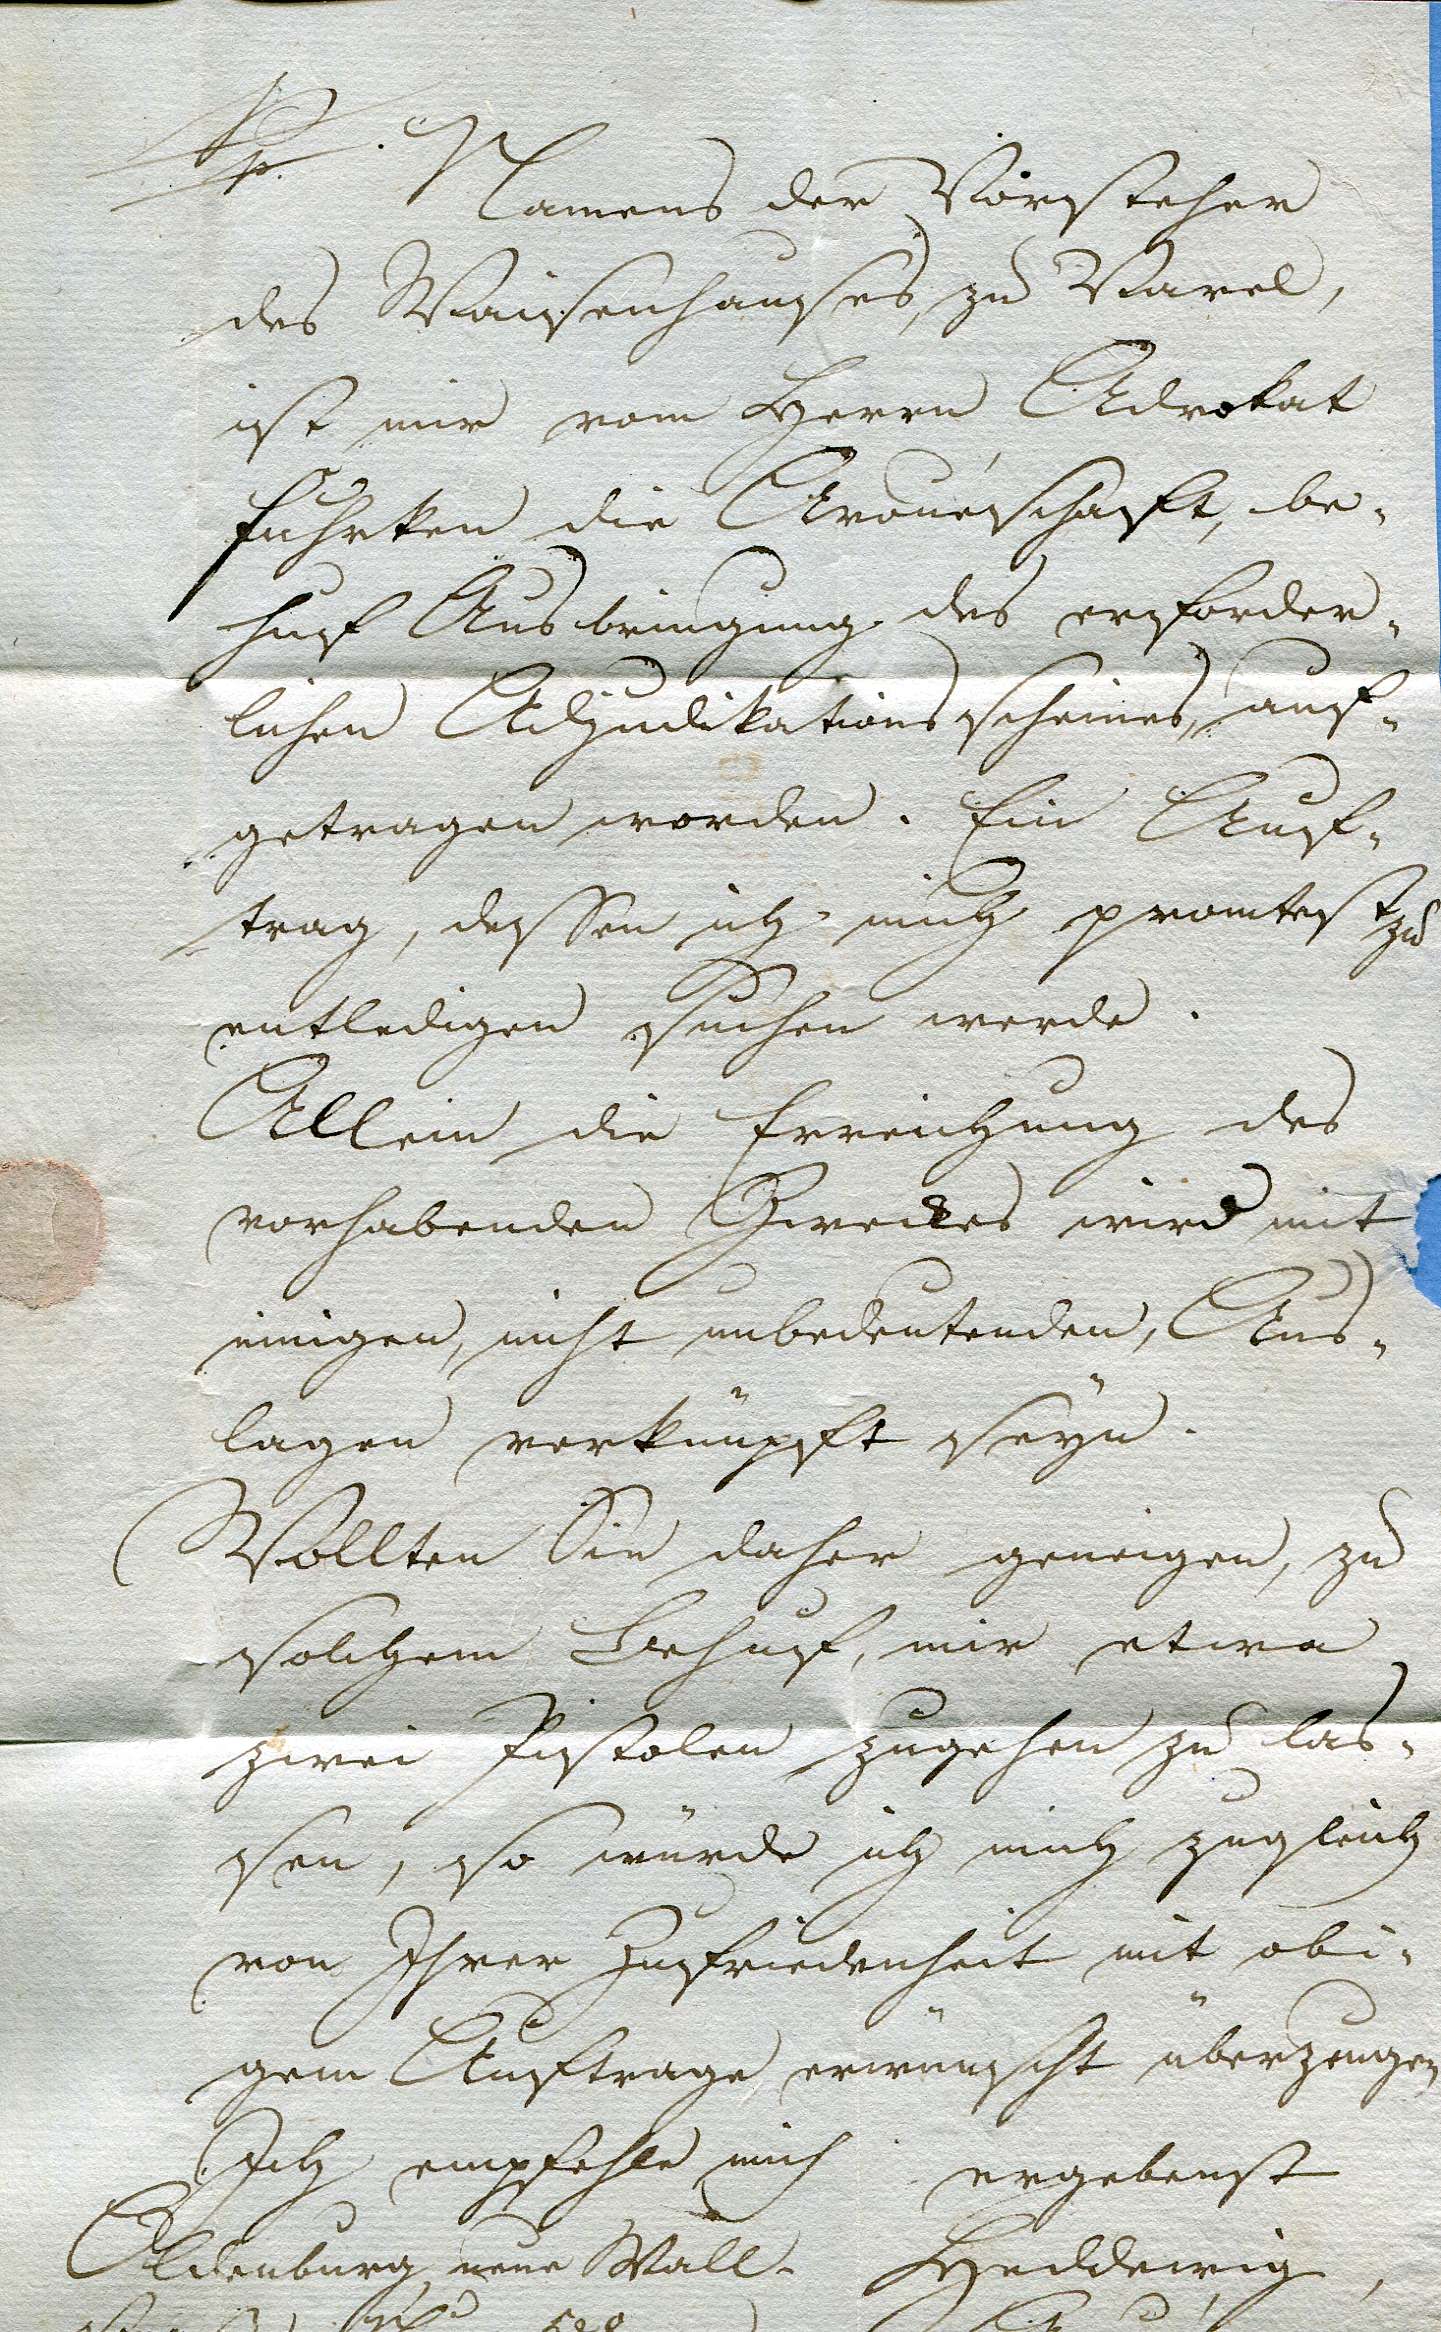 Namens der Vorsteher
des Waisenhauses, zu Varel,
ist mir vom Herrn Advokat
Fuhrken die Avouéschaft, be-
huf Ausbringung des erforder-
lichen Adjudikationsscheines, auf-
getragen worden. Ein Auf-
trag, dessen ich mich promtest zu
entledigen suchen werde.
Allein die Erreichung des
vorhabenden Zweckes wird mit
einigen, nicht unbedeutenden, Aus-
lagen verknüpft seyn.
Wollten Sie daher geneigen, zu
solchem Behuf, mir etwa
zwei Pistolen zugehen zu las-
sen, so würde ich mich zugleich
von Ihrer Zufriedenheit mit obi-
gem Auftrage erwünscht überzeugen
Ich empfehle mich ergebenst
Oldenburg, neue Wall. Heddewig,